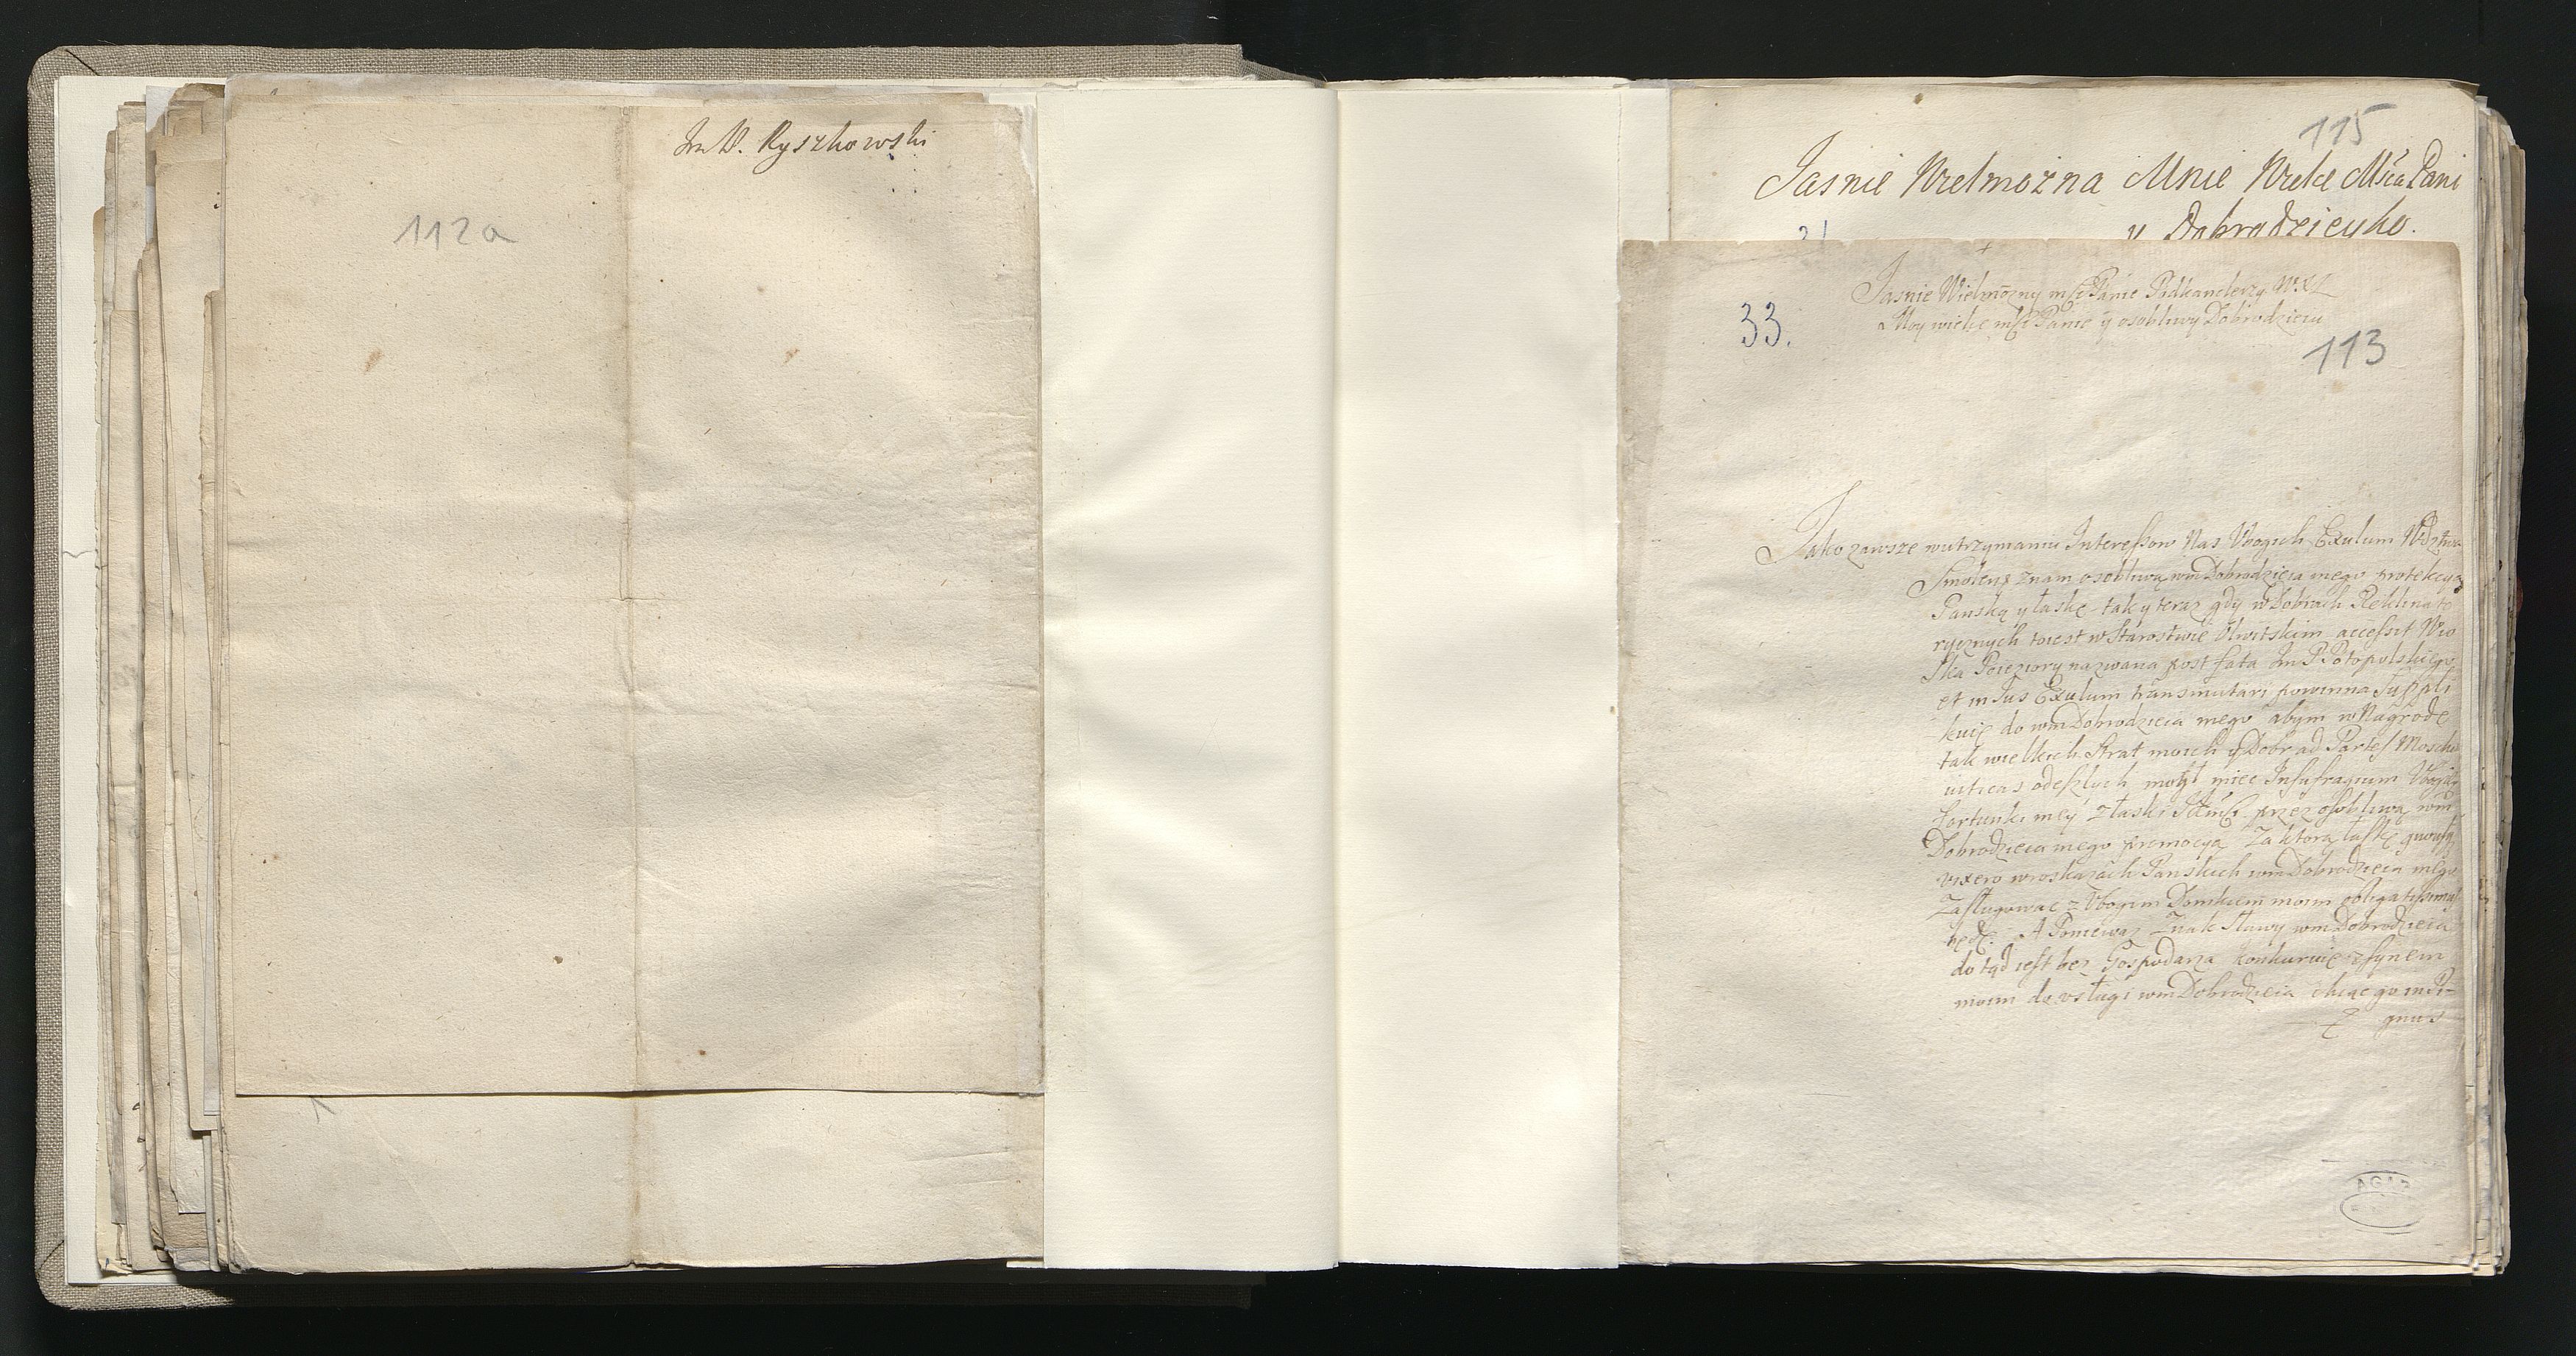 Im P. Ryszkowski
112a
115
Jasnie Wielmozna Mnie Wielce Mscia Pani
y Dobrodzieyko.
33.
Jasnie Wielmozny msci Panie Podkanclerzy W. X L
Moy wielce msci Panie y osobliwy Dobrodzieiu
113
Jako zawsze w utrzymaniu Interessow Nas Vbogich Exulum Wdztwa
Smolensk znam osobliwą wm Dobrodzieia mego protekcyą
Panską y łaskę tak y teraz gdy w Dobrach Reklinato
rycznych to iest w Starostwie accessit Wio
ska nazwana post fata Im P Potopolskiego
et in Jus Exulum transmutari powinna Suppli
kuię do wm Dobrodzieia mego abym w Nagrodę
tak wielkich Strat moich y Dobr ad Partes Mosch
uiticas odeszłych mogł miec Vbogiey
fortunki mey z łaski przez osobliwą wm
Dobrodzieia mego promocyą Za ktorą łaskę
vixero w roskazach Panskich wm Dobrodzieia mego
Zasługowac z Vbogim Domkiem moim obligatissimus
będę. A Poniewaz Znak Sławy wm Dobrodzieia
do tąd iest bez Gospodarza konkuruię z synem
moim do vsługi wm Dobrodzieia chcąc go indi-
gnus
AGAD